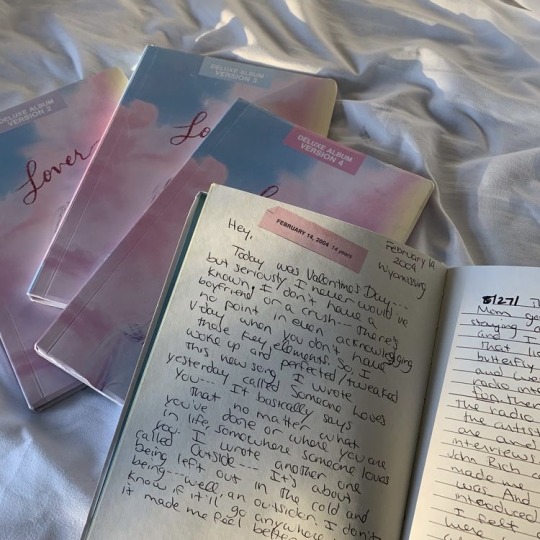 DELUXE ALBUM
VERSION 2
Lover
DELUXE ALBUM
VERSION 3
Lo
DELUXE ALBUM
VERSION 4
FEBRUARY 14, 2004 14 years
February 14
2004
Wyomissing
Hey,
Today was Valentines Day---
but seriously I never would've
known, I don't have a
boyfriend or a crush--- there's
no point in even acknowledging
V-day when you don't have
those key elements. So, I
woke up and perfected/tweaked
this new song I wrote
yesterday called Someone Loves
You---. It basically says
That no matter what
you've done or where you are
in life, somewhere someone loves
you. I wrote another one
called Outside--- It's about
being left out in the cold and
being---well, an outsider. I don't
know if it'll go anywhere
it made me feel better
8/27/
Mom
staying
and I
That
butterfly
and we
radio
The radio
the artist
are and
interviews
John Rich
made me
was. And
introduced
I felt
were